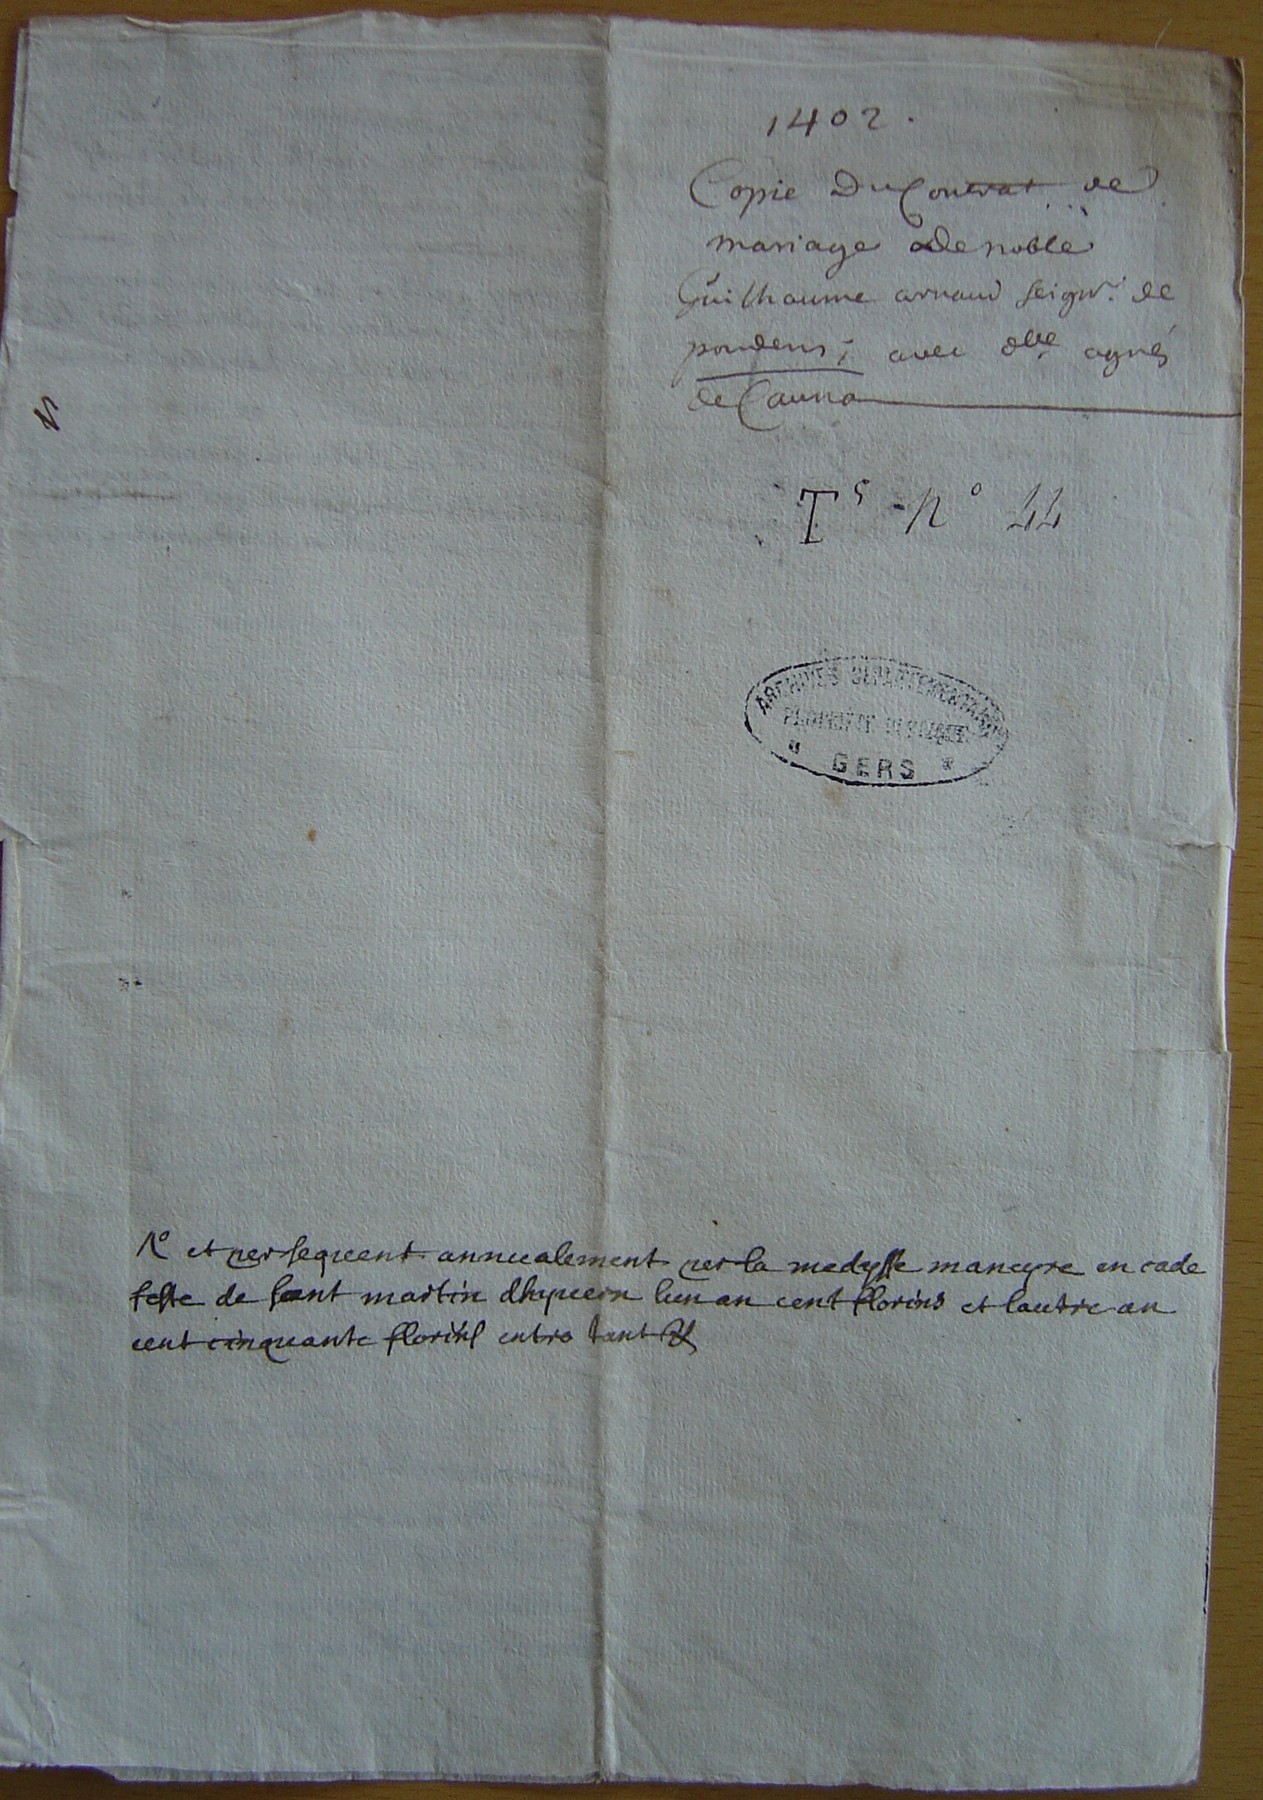 1402.
Copie Du Contrat de
mariage de noble
Guilhaume arnaud seigr. de
poudens; avec dlle agnés
de Cauna
T5 - n° 44
ARCHIVES DEPARTEMENTALES
PROPRIÉTÉ PUBLIQUE
* GERS *
N° et per sequent annualement per la medysse maneyre en cade
feste de sant martin dhyuern lun an cent florins et lautre an
cent cinquante florins entro tant